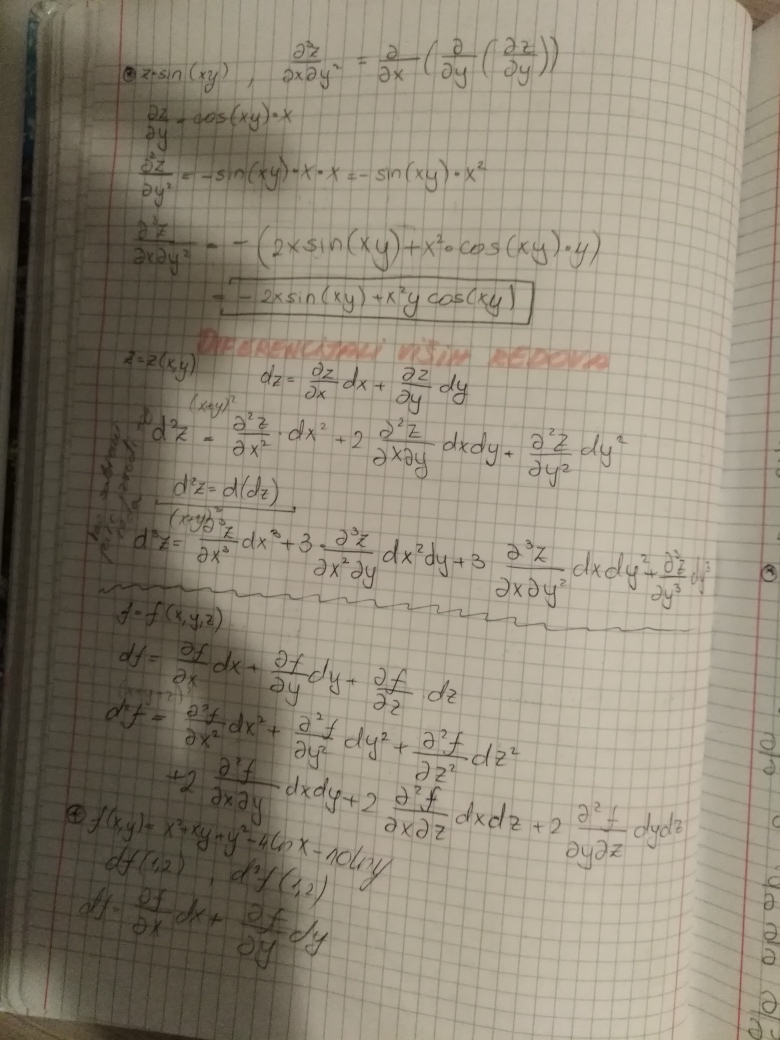 ③ z=sin(xy) , ∂³z/∂x∂y² = ∂/∂x (∂/∂y (∂z/∂y))
∂z/∂y = cos(xy)·x
∂²z/∂y² = -sin(xy)·x·x = -sin(xy)·x²
∂³z/∂x∂y² = -(2xsin(xy)+x²·cos(xy)·y)
= -2xsin(xy)+x²y cos(xy)
DIFERENCIJALI VIŠIH REDOVA
z=z(x,y) dz = ∂z/∂x dx + ∂z/∂y dy
(x+y)²
d²z = ∂²z/∂x² · dx² + 2 ∂²z/∂x∂y dxdy + ∂²z/∂y² dy²
d²z = d(dz)
(x+y)³
d³z = ∂³z/∂x³ dx³ + 3 · ∂³z/∂x²∂y dx²dy + 3 ∂³z/∂x∂y² dxdy² + ∂³z/∂y³ dy³
f=f(x,y,z)
df = ∂f/∂x dx + ∂f/∂y dy + ∂f/∂z dz
d²f = ∂²f/∂x² dx² + ∂²f/∂y² dy² + ∂²f/∂z² dz²
+2 ∂²f/∂x∂y dxdy + 2 ∂²f/∂x∂z dxdz + 2 ∂²f/∂y∂z dydz
④ f(x,y) = x²+xy+y²-4lnx-10lny
df(1,2) , d²f(1,2)
df = ∂f/∂x dx + ∂f/∂y dy